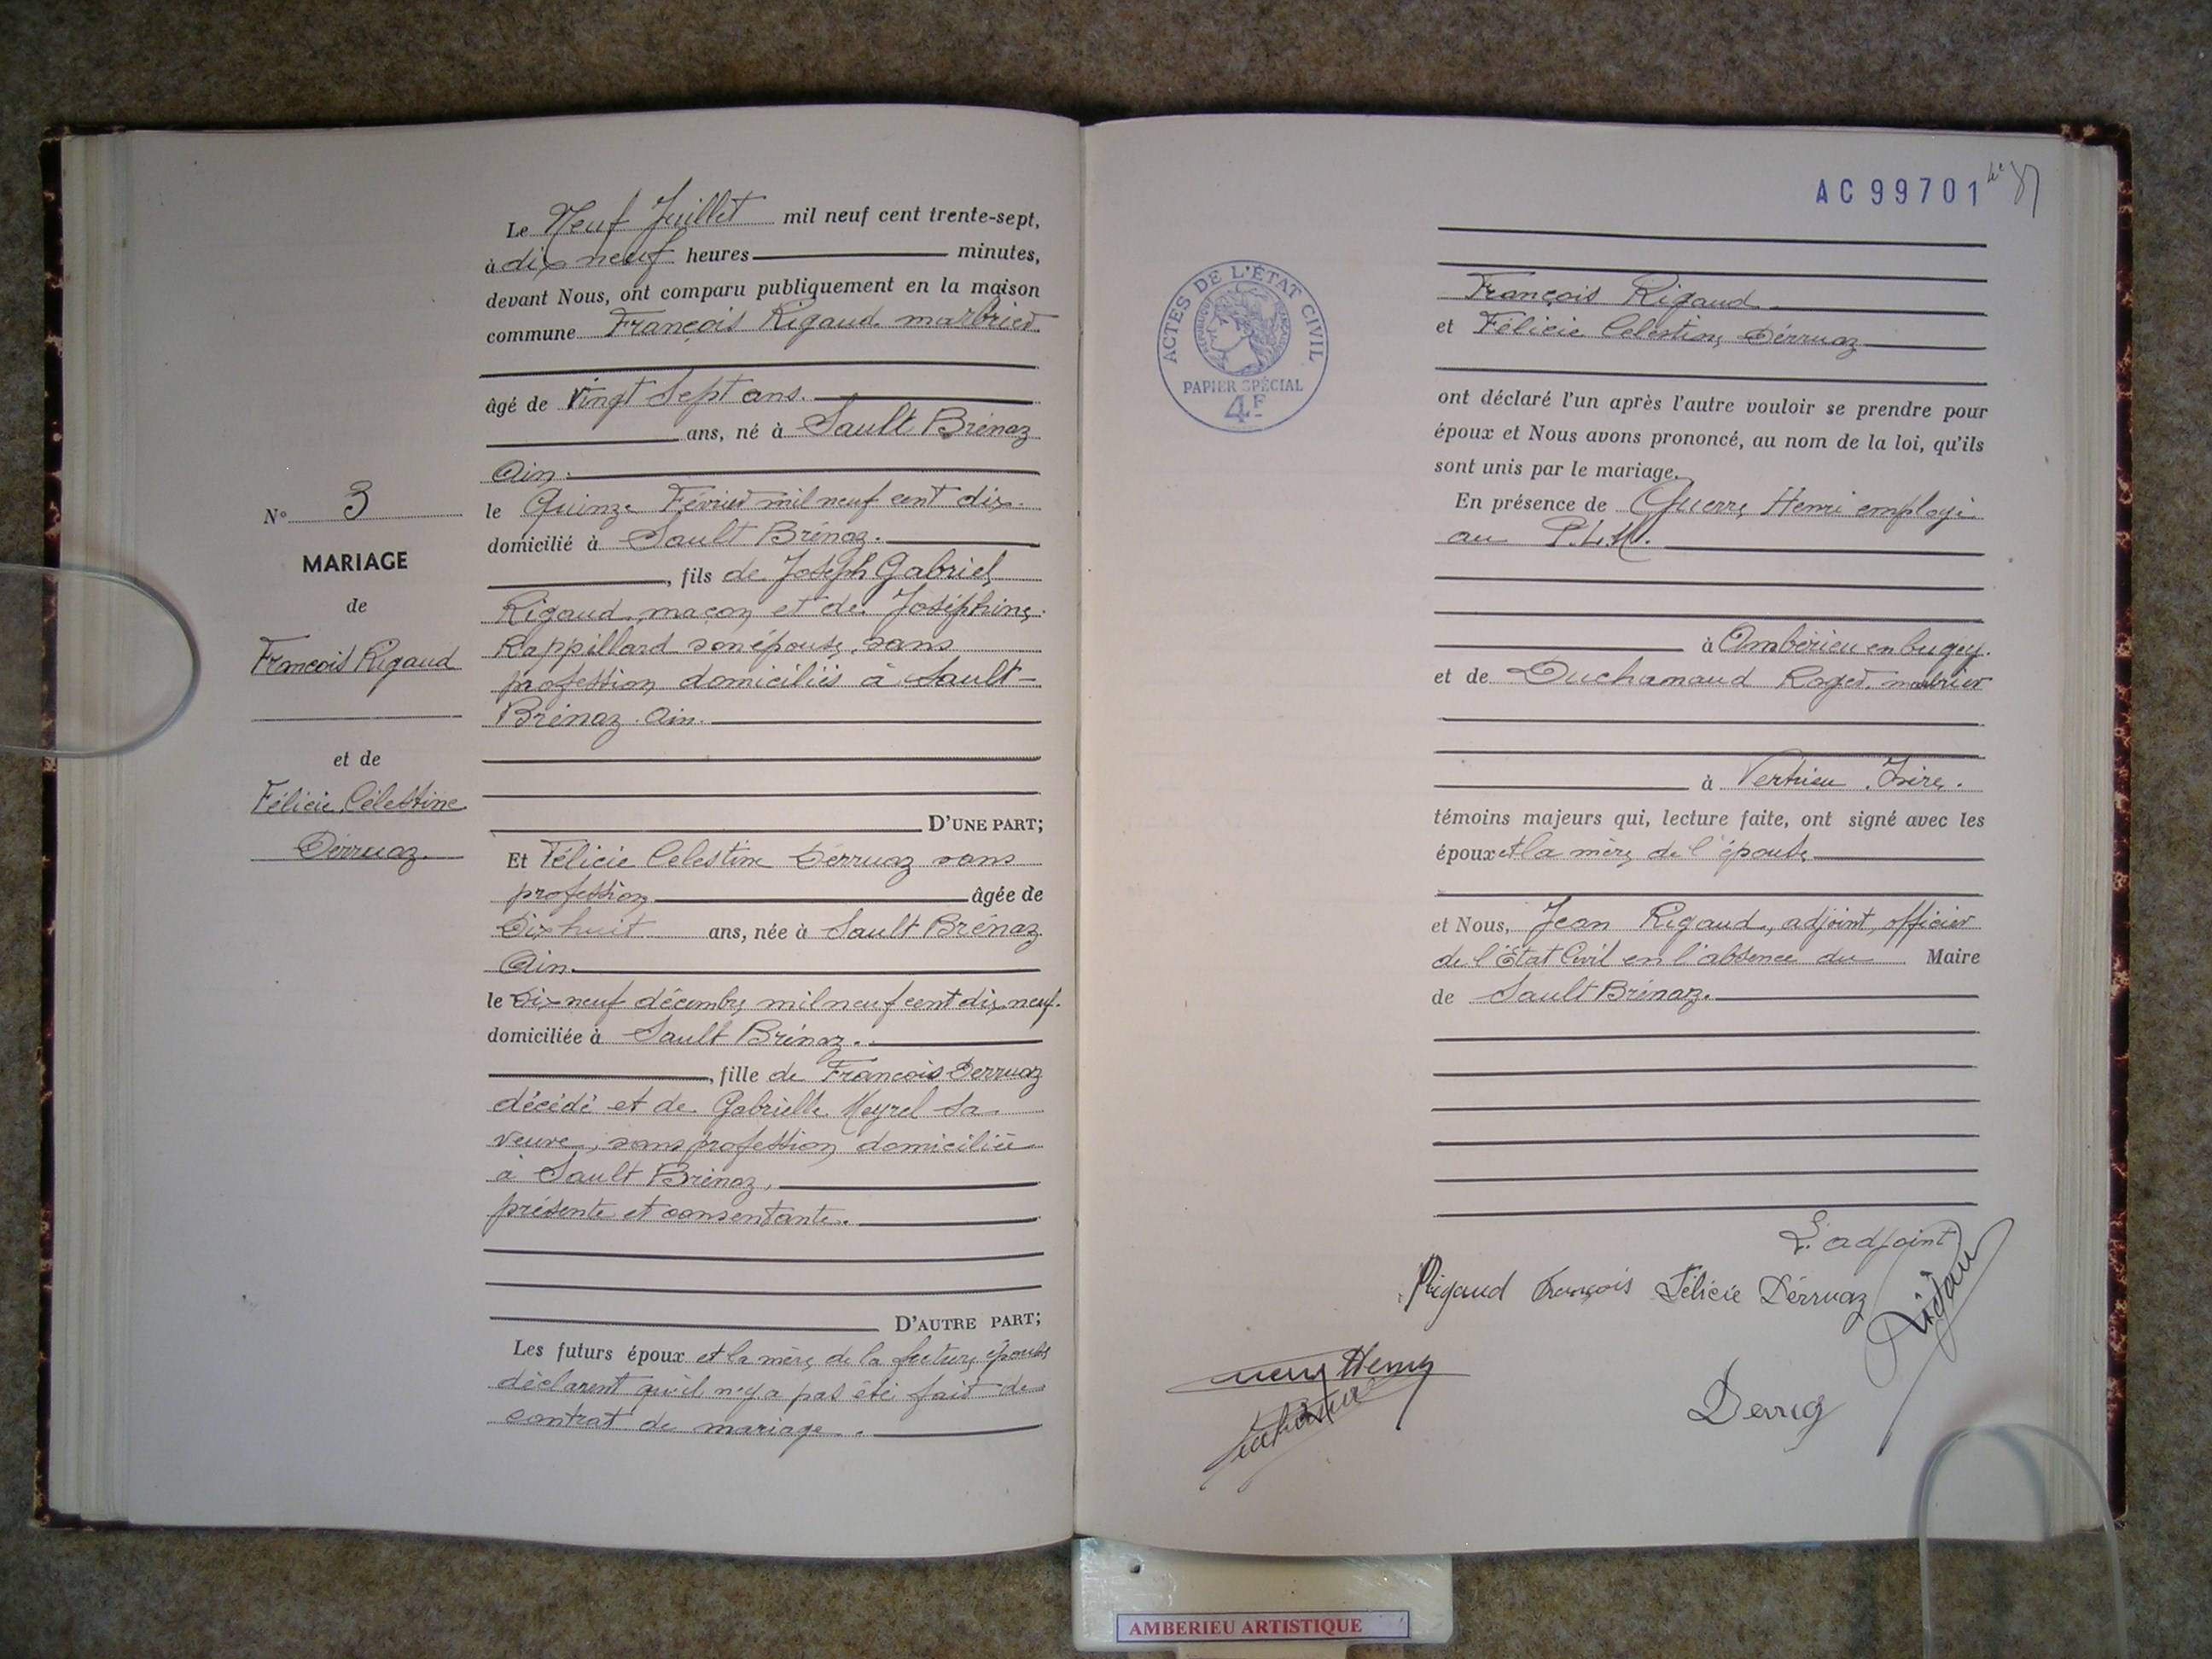 Le Neuf Juillet mil neuf cent trente-sept,
à dix neuf heures minutes,
devant Nous, ont comparu publiquement en la maison
commune François Rigaud marbrier
âgé de vingt Sept ans.
ans, né à Sault Brénaz
Ain.
le Quinze Février mil neuf cent dix.
domicilié à Sault Brénaz.
, fils de Joseph Gabriel
Rigaud, maçon et de Joséphine
Rappillard son épouse, sans
profession domiciliés à Sault-
Brénaz. Ain.
D'UNE PART;
N° 3
MARIAGE
de
François Rigaud
et de
Félicie Célestine
Dérruaz.
Et Félicie Celestine Dérruaz sans
profession âgée de
Dix huit ans, née à Sault Brénaz
Ain.
le Dix neuf décembre mil neuf cent dix neuf.
domiciliée à Sault Brénaz.
, fille de François Derruaz
décédé et de Gabrielle Meyrel sa
veuve, sans profession domiciliée
à Sault Brénaz,
présente et consentante.
D'AUTRE PART;
Les futurs époux et la mère de la future épouse
déclarent qu'il n'y a pas été fait de
contrat de mariage.
AC 99701
ACTES DE L'ÉTAT CIVIL
PAPIER SPÉCIAL
4F
François Rigaud
et Félicie Celestine Dérruaz
ont déclaré l'un après l'autre vouloir se prendre pour
époux et Nous avons prononcé, au nom de la loi, qu'ils
sont unis par le mariage.
En présence de Guerre Henri employé
au P.L.M.
à Ambérieu en bugey.
et de Duchamaud Roger marbrier
à Vertrieu Isère.
témoins majeurs qui, lecture faite, ont signé avec les
époux et la mère de l'épouse
et Nous, Jean Rigaud, adjoint, officier
de l'Etat Civil en l'absence du Maire
de Sault Brénaz.
L'adjoint
Rigaud François Félicie Dérruaz
Henry
AMBERIEU ARTISTIQUE